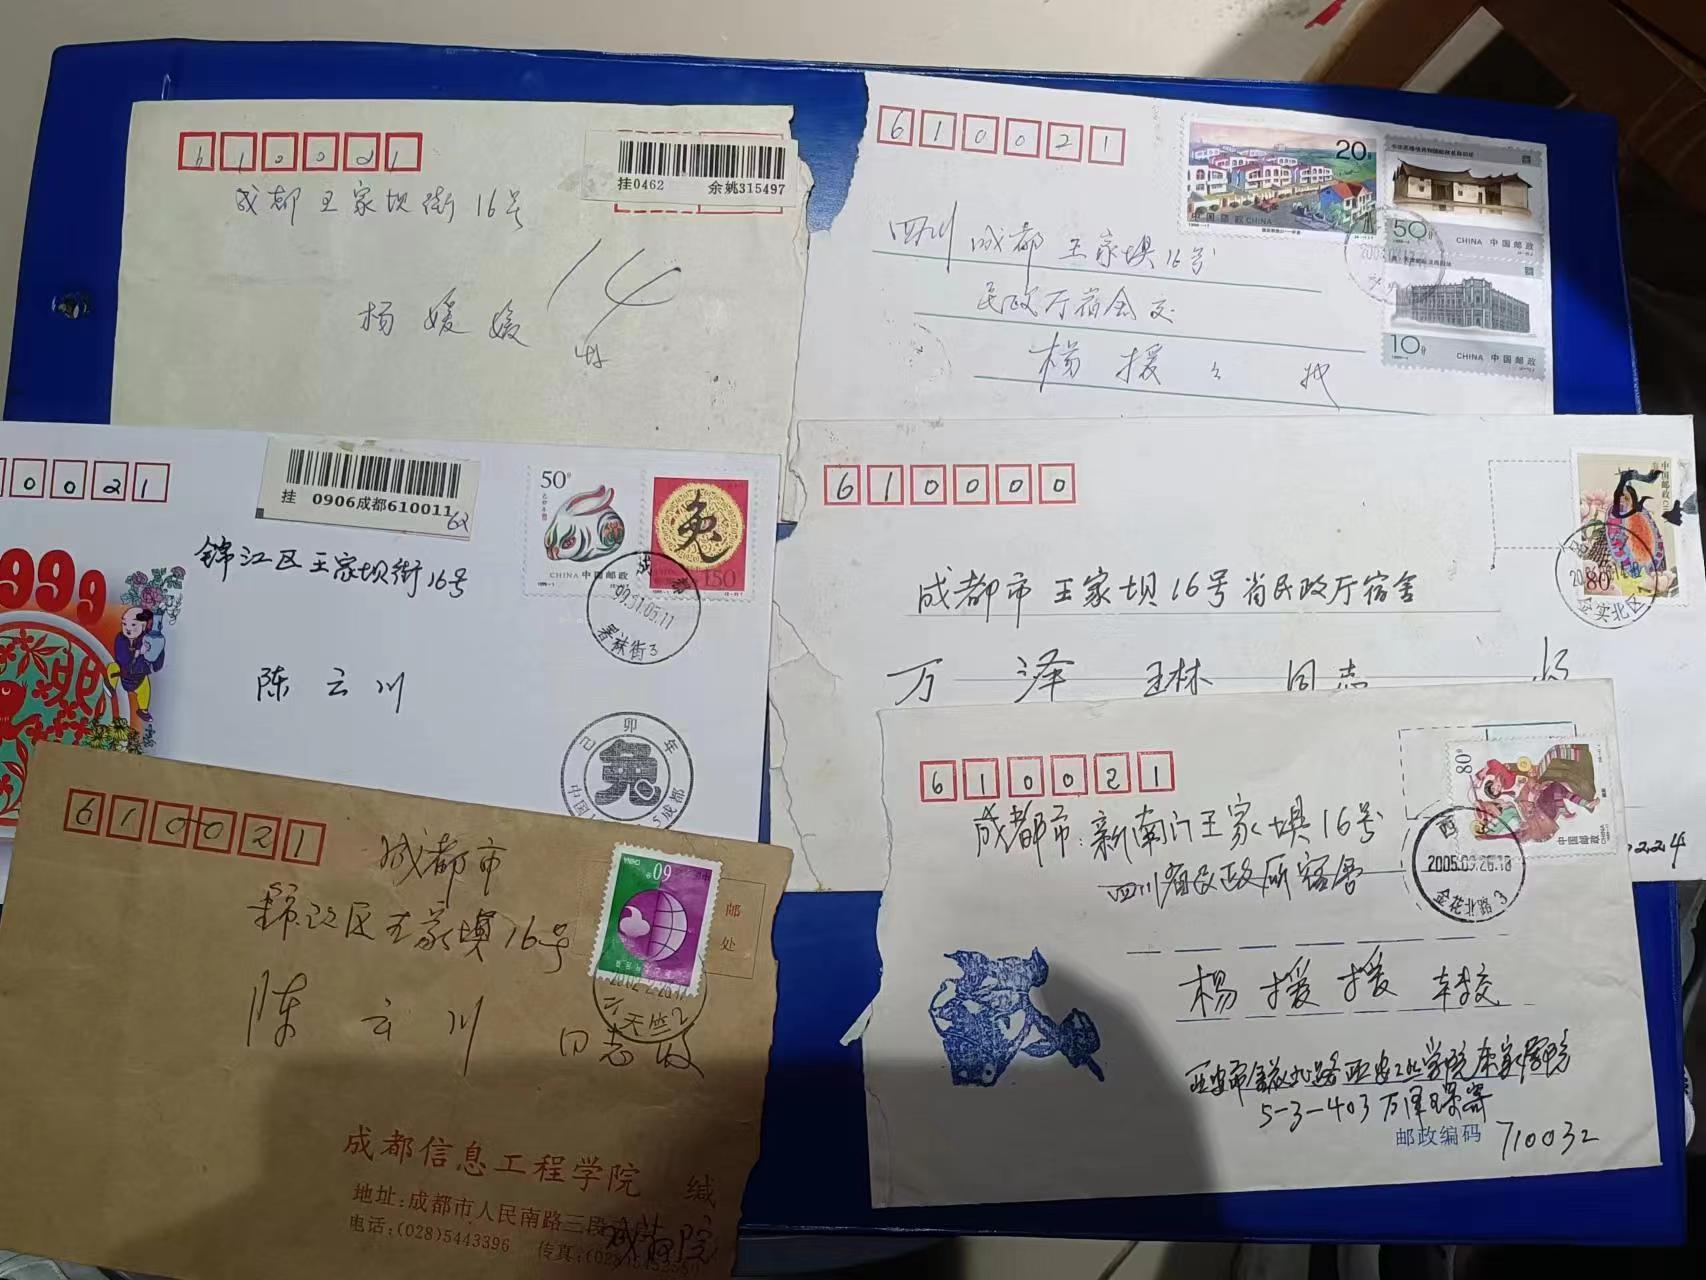 610021
挂0462 余姚315497
成都王家坝街16号
杨媛媛
610021
20分
中国邮政 CHINA
50分
CHINA 中国邮政
10分
CHINA 中国邮政
四川成都王家坝16号
民政厅宿舍交
杨援々收
0021
挂 0906成都610011
62
50分
CHINA 中国邮政
兔
150
锦江区王家坝街16号
陈云川
999
成都
99.01.05.11
署袜街3
己卯年
兔
成都
610000
中国邮政
80分
成都市王家坝16号省民政厅宿舍
万泽琳同志收
610021
80分
中国邮政
成都市:新南门王家坝16号
四川省民政厅宿舍
2005.09.26.18
金花北路3
杨援援 转交
5-3-403
邮政编码 710032
610021
成都市
锦江区王家坝16号
60分
邮
处
天竺2
陈云川同志收
成都信息工程学院 缄
地址:成都市人民南路三段
电话:(028)5443396 传真:(028)